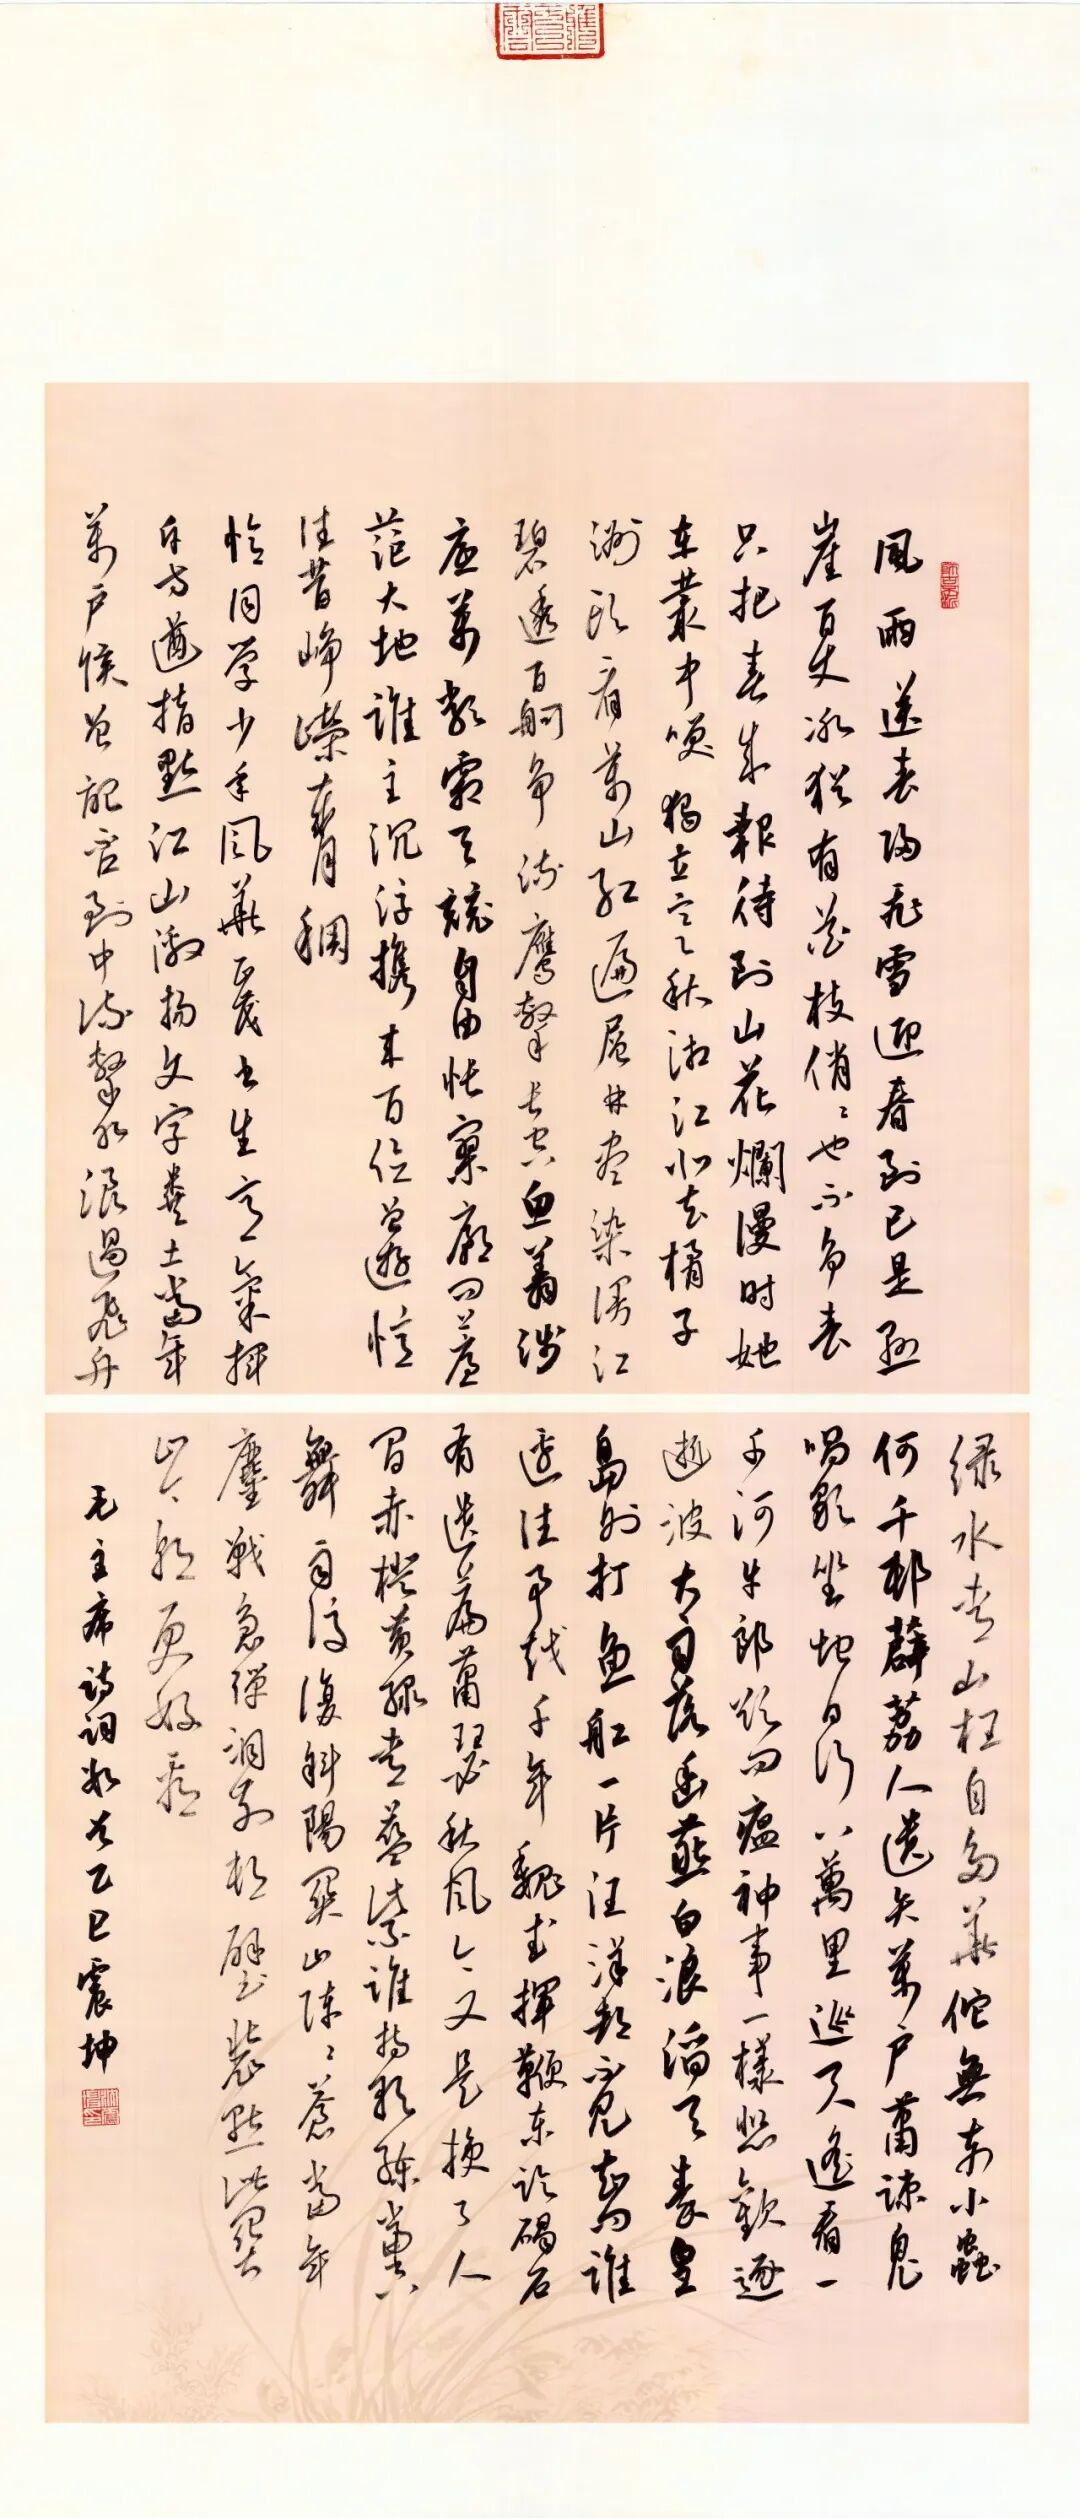 風雨送春歸飛雪迎春到已是懸
崖百丈冰猶有花枝俏〻也不争春
只把春來報待到山花爛漫時她
在叢中笑獨立寒秋湘江北去橘子
洲頭看萬山紅遍層林盡染漫江
碧透百舸争流鷹擊長空魚翔淺
底萬類霜天競自由悵寥廓問蒼
茫大地誰主沉浮攜來百侣曾遊憶
往昔崢嶸歲月稠
恰同学少年風華正茂書生意氣揮
斥方遒指點江山激揚文字糞土當年
萬户侯曾記否到中流擊水浪遏飛舟
绿水青山枉自多華佗無奈小蟲
何千邨薜荔人遗矢萬户蕭疎鬼
唱歌坐地日行八萬里巡天遙看一
千河牛郎欲问瘟神事一樣悲歡逐
逝波大雨落幽燕白浪滔天秦皇
島外打魚船一片汪洋都不見知向誰
邊往事越千年魏武揮鞭東臨碣石
有遺篇蕭瑟秋風今又是换了人
間赤橙黄绿青藍紫誰持彩練當空
舞雨後復斜陽関山陣〻蒼當年
鏖戰急彈洞前村壁裝點此関
山今朝更好看
毛主席詩詞數首乙巳震坤